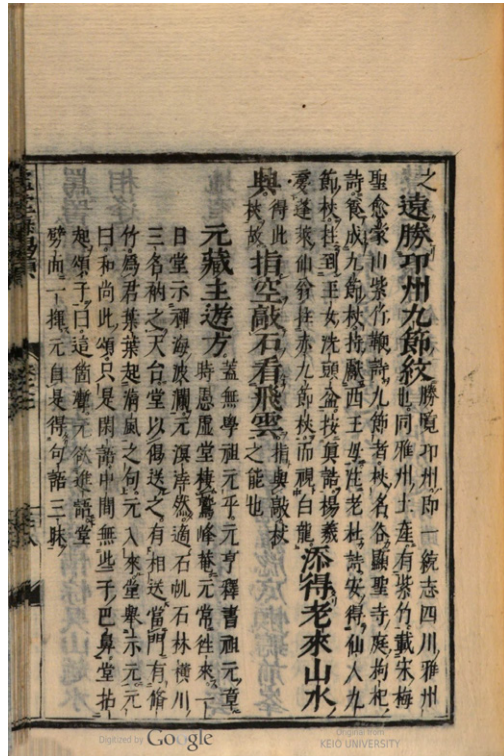 之遠勝卭州九節紋勝覧卭州即一統志四川雅州
也同雅州土産有紫竹載宋梅
聖愈蒙山紫竹鞭詩九節者杖名谷顯聖寺庭拘杞
詩食成九節杖持獻西王母注老杜詩安得仙人九
節杖拄到玉女洗頭盆按真誥楊羲
夢蓬萊仙翁拄赤九節杖而視白龍添得老來山水
興得此杖故指空敲石看飛雲指與敲杖之能也
元藏主遊方蓋無學祖元乎元亨釋書祖元章
時愚虛堂棲鷲峰菴元常徃來一
日堂示禪海波瀾元溟涬然適石帆石林橫川
三名衲之天台堂以偈送之有相送當門有脩
竹為君葉葉起清風之句元入來堂舉示元元
曰和尚此頌只是閑語中間無些子巴鼻堂拈
起頌子曰這箇聻元欲進語堂
劈面一揮元自是得句語三昧
Digitized by Google
Original from
KEIO UNIVERSITY